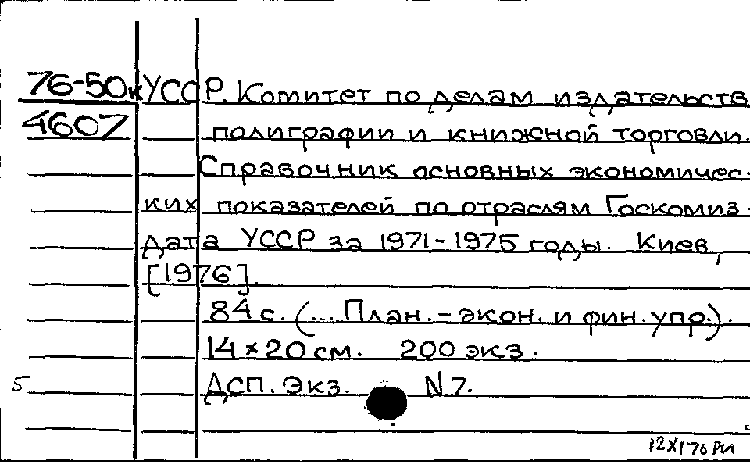 76-50к УССР. Комитет по делам издательств
4607 полиграфии и книжной торговли.
Справочник основных экономичес-
ких показателей по отраслям Госкомиз-
дата УССР за 1971-1975 годы. Киев,
[1976].
84 с. (... План.-экон. и фин. упр.).
14×20 см. 200 экз.
5 ДСП. Экз. N 7.
12X176